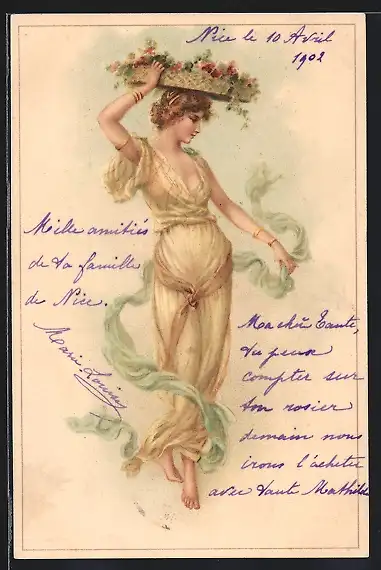 Nice le 10 Avril
1902
Mille amitiés
de ta famille
de Nice.
Marie Louise
Ma chère Tante,
tu peux
compter sur
ton rosier
demain nous
irons l'acheter
avec tante Mathilde